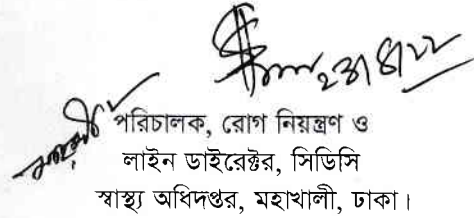 পরিচালক, রোগ নিয়ন্ত্রণ ও
লাইন ডাইরেক্টর, সিডিসি
স্বাস্থ্য অধিদপ্তর, মহাখালী, ঢাকা।